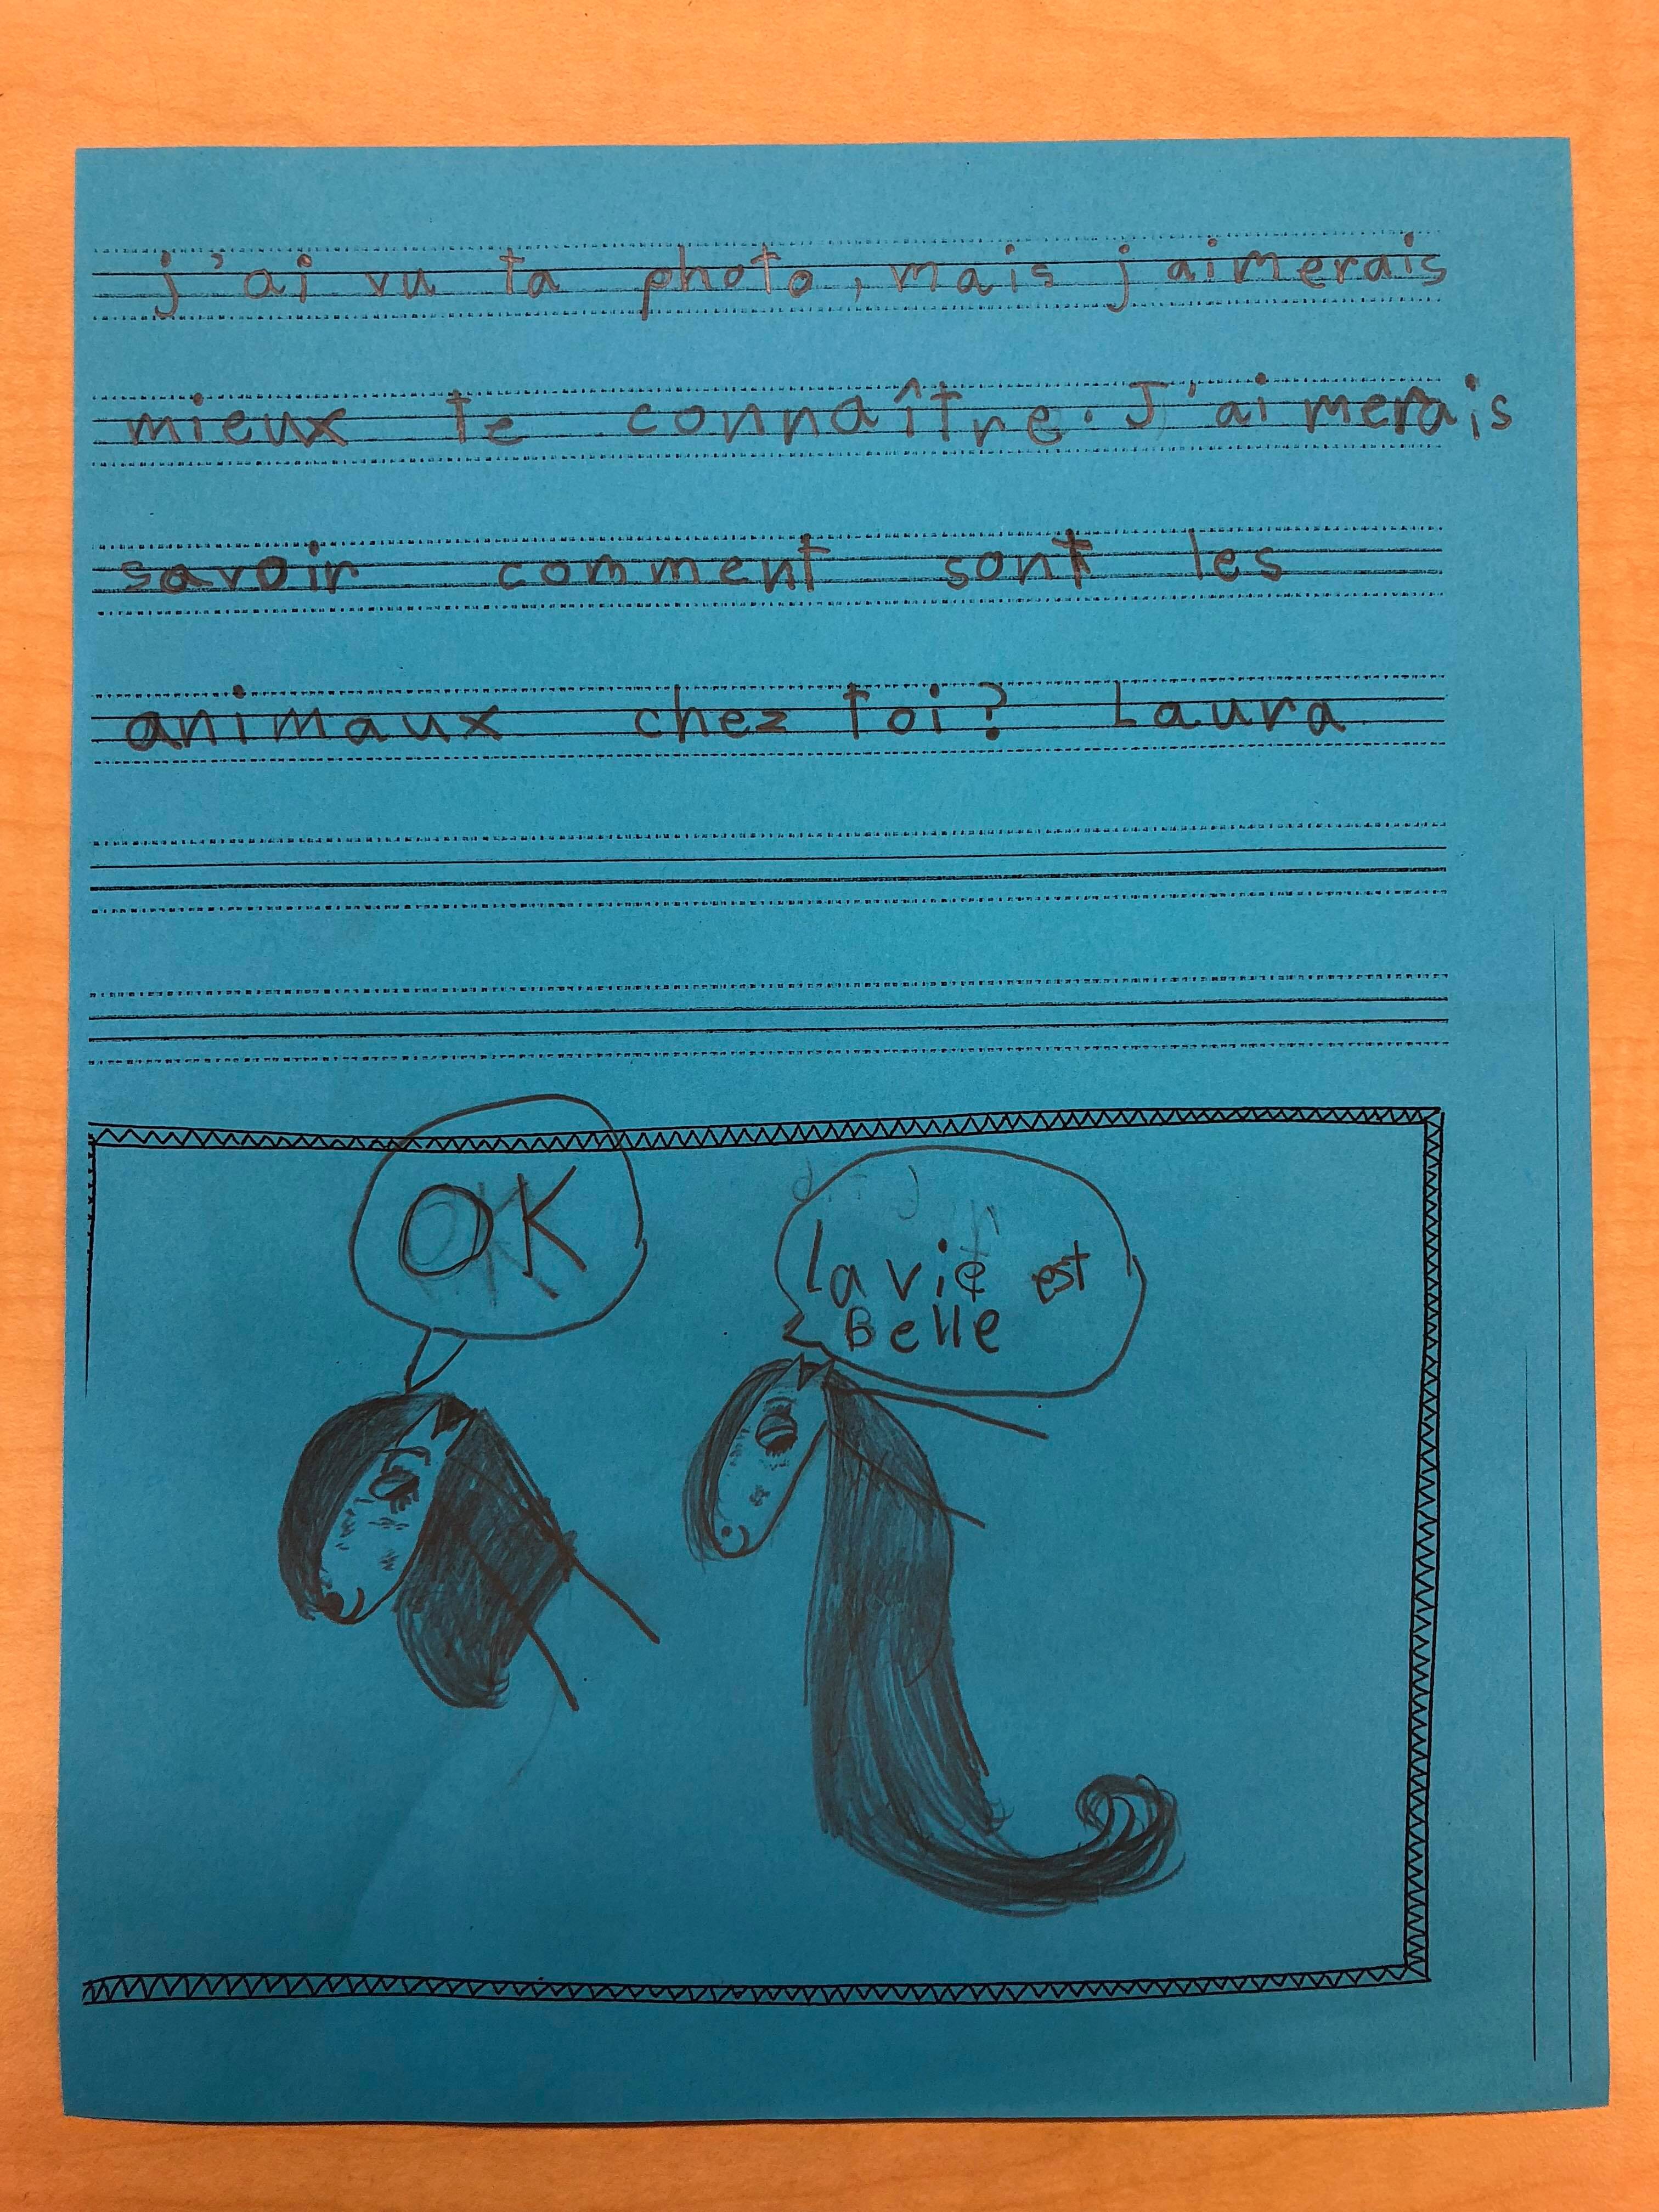 j'ai vu ta photo, mais j aimerais
mieux te connaître. J'aimerais
savoir comment sont les
animaux chez toi? Laura
OK
la vie est
Belle